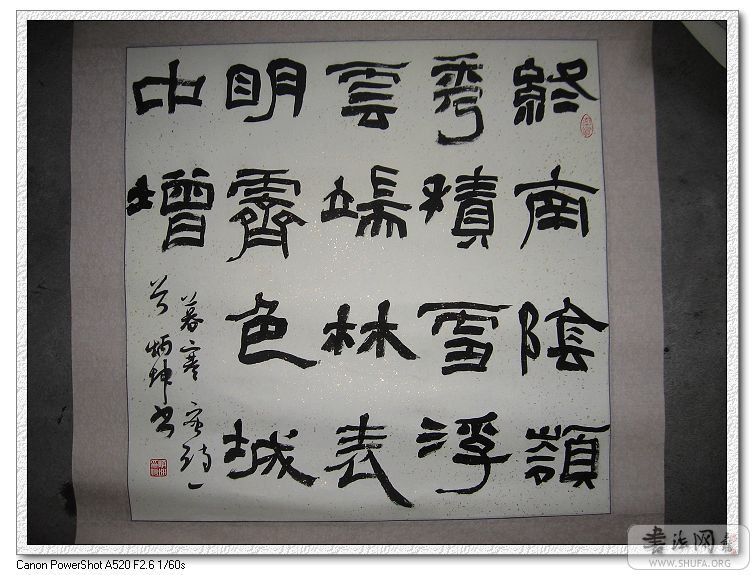 終南陰嶺
秀積雪浮
雲端林表
明霽色城
中增
暮寒
炳坤書
Canon PowerShot A520 F2.6 1/60s
書法网
WWW.SHUFA.ORG